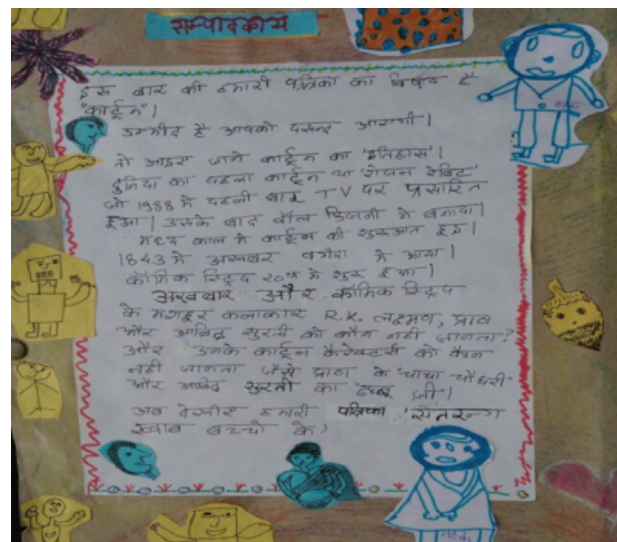 सम्पादकीय
इस बार की हमारी पत्रिका का विषय है
"कार्टून"।
उम्मीद है आपको पसन्द आएगी।
तो आइए जाने कार्टून का 'इतिहास'।
दुनिया का पहला कार्टून था 'रोजन रेबिट'
जो 1988 मे पहली बार TV पर प्रसारित
हुआ। उसके बाद वॉल डिजनी ने बनाया।
मध्य काल मे कार्टून की शुरूआत हुई।
1843 मे अखबार वगैरा मे आया।
कॉमिक स्ट्रिप 20 मे शुरू हुआ।
अखबार और कॉमिक स्ट्रिप
के मशहूर कलाकार R.K. लक्ष्मण, प्राण
और आबिद सुरती को कौन नही जानता?
और उनके कार्टून कैरेक्टर्स को कौन
नही जानता जैसे प्राण के "चाचा चौधरी"
और आबिद सुरती का ढब्बू जी।
अब देखीए हमारी पत्रिका 'सतरन्ग
ख्वाब बच्चो के'